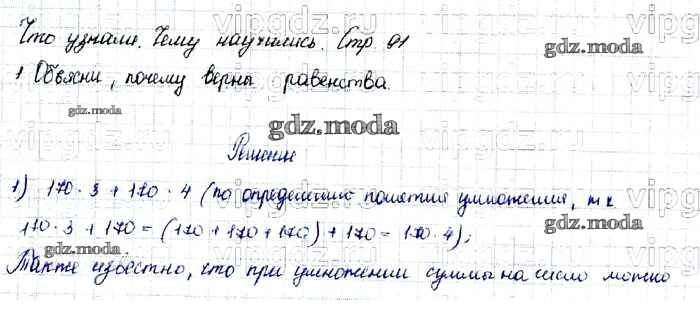 Что узнали. Чему научились. Стр 91
1 Объясни, почему верны равенства.
Решение
1) 170 · 3 + 170 · 4 (по определению понятия умножения, т к
170 · 3 + 170 = (170 + 170 + 170) + 170 = 170 · 4);
Также известно, что при умножении суммы на число можно
gdz.moda
gdz.moda
gdz.moda
gdz.moda
gdz.moda
gdz.moda